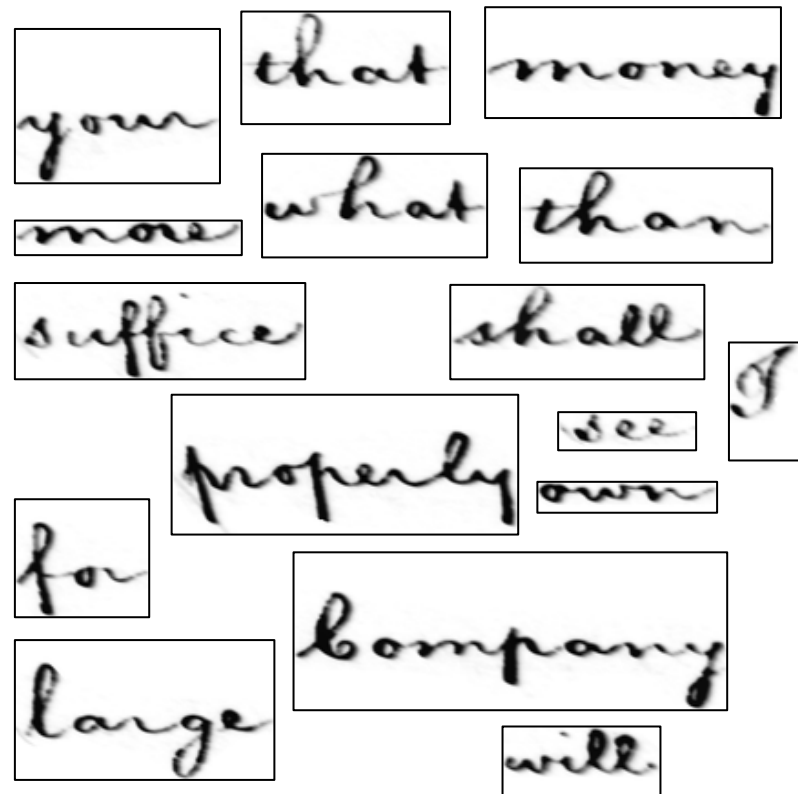 your that money
more what than
suffice shall I
properly see
own
for Company
large will.